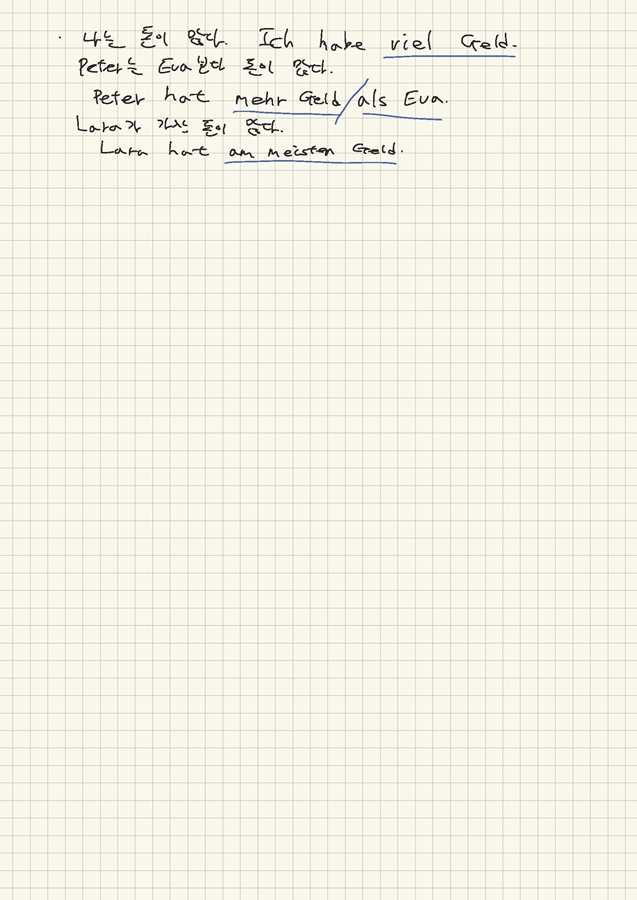 · 나는 돈이 많다. Ich habe viel Geld.
Peter는 Eva보다 돈이 많다.
Peter hat mehr Geld / als Eva.
Lara가 가장 돈이 많다.
Lara hat am meisten Geld.